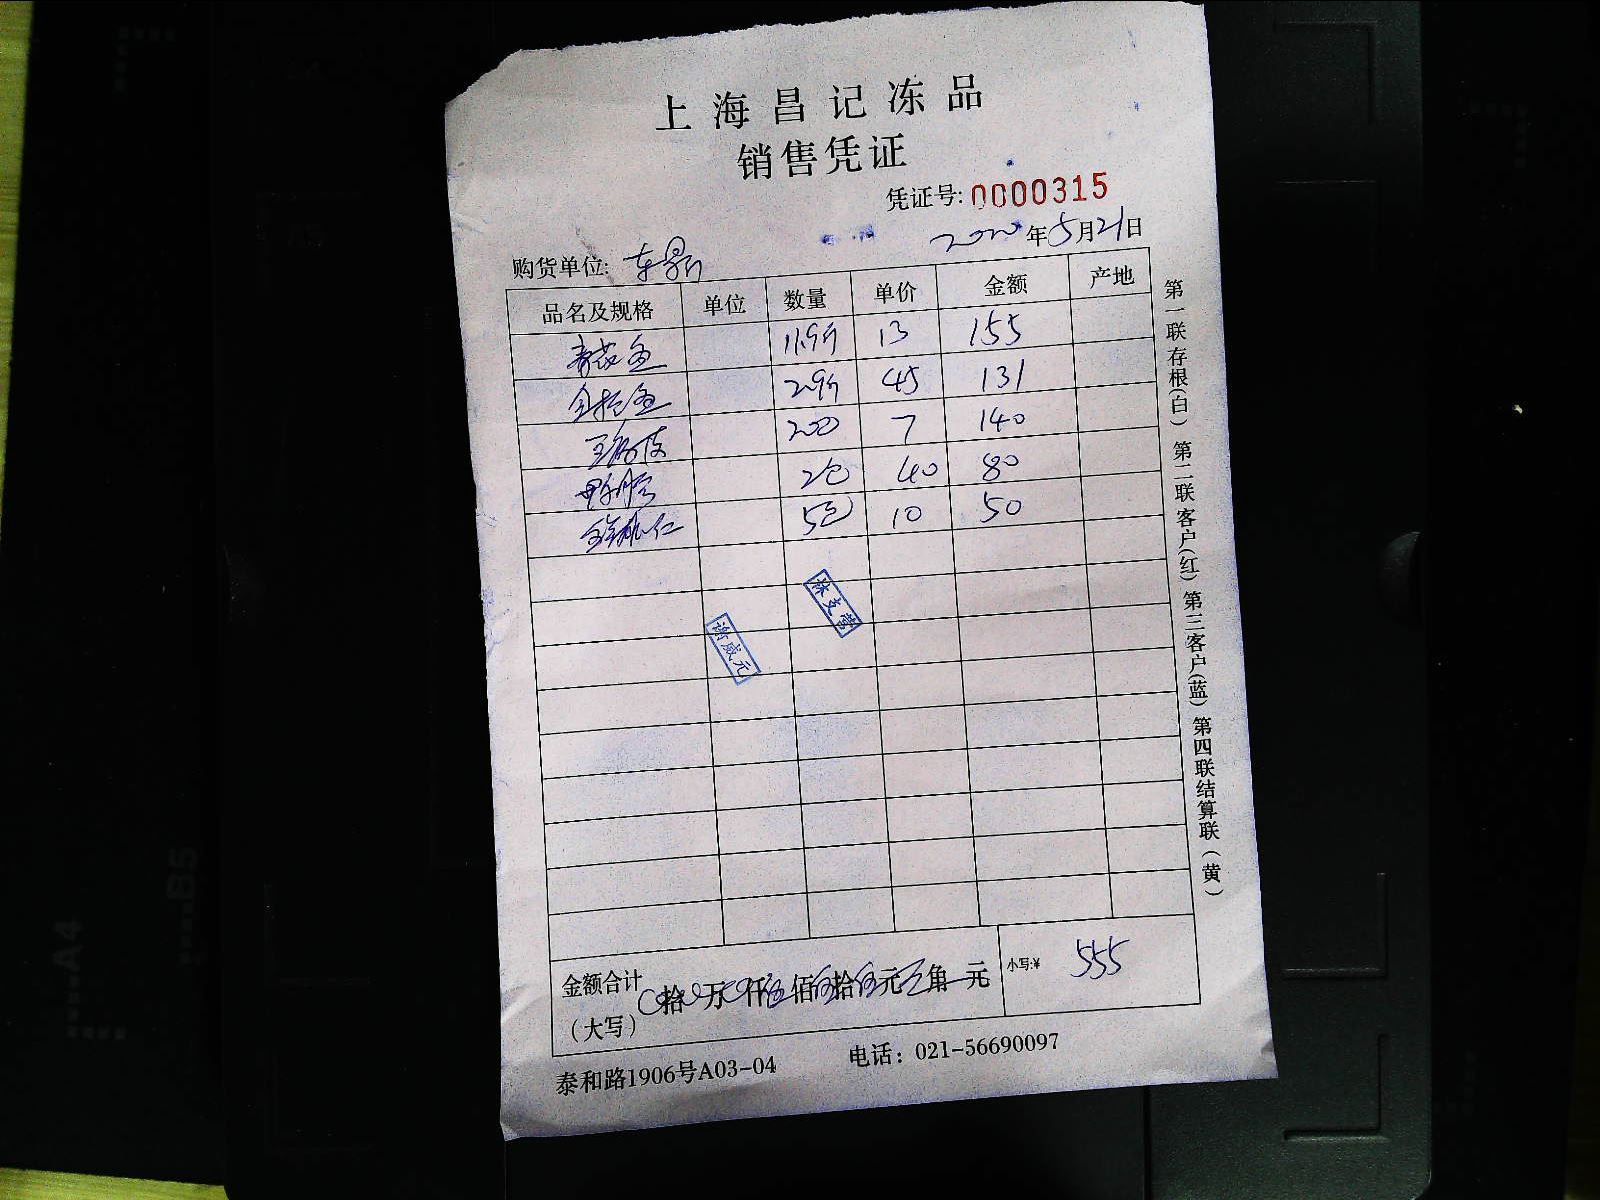 上海昌记冻品
销售凭证
凭证号: 0000315
2020年5月21日
购货单位: 东鼎
品名及规格 单位 数量 单价 金额 产地
青花鱼 11.9斤 13 155
金枪鱼 2.9斤 45 131
200 7 140
2包 40 80
仁 5包 10 50
林支营
谢威元
金额合计 拾 万 仟伍佰伍拾伍元 角 元
(大写)
小写:¥ 555
泰和路1906号A03-04 电话: 021-56690097
第一联存根(白) 第二联客户(红) 第三客户(蓝) 第四联结算联(黄)